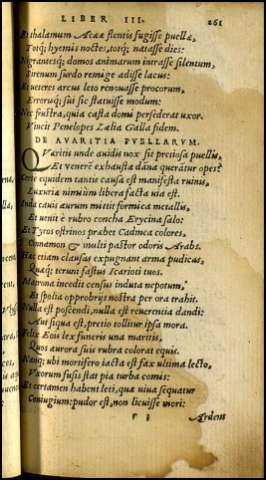 LIBER III. 261
Et thalamum Aeaeae flentis fugisse puellae,
Totq; hyemis noctes, totq; natasse dies:
Nigrantesq; domos animarum intrasse silentum,
Sirenum surdo remige adisse lacus:
Et veteres arcus leto renouasse procorum,
Errorisq; sui sic statuisse modum:
Nec frustra, quia casta domi persederat uxor.
Vincit Penelopes Aelia Galla fidem.
DE AVARITIA PVELLARVM.
Quaeritis unde auidis nox sit pretiosa puellis,
Et venere exhausta dãna querãtur opes?
Certe equidem tantis causa est manifesta ruinis,
Luxuria nimium libera facta uia est.
Inda cauis aurum mittit formica metallis,
Et uenit è rubro concha Erycina salo:
Et Tyros ostrinos praebet Cadmea colores,
Cinnamon & multi pastor odoris Arabs.
Haec etiam clausas expugnant arma pudicas,
Quaeq; terunt fastus Icarioti tuos.
Matrona incedit census induta nepotum,
Et spolia opprobrij nostra per ora trahit.
Nulla est poscendi, nulla est reuerentia dandi:
Aut siqua est, pretio tollitur ipsa mora.
Felix Eois lex funeris una maritis,
Quos aurora suis rubra colorat equis.
Nanq; ubi mortifero iacta est fax ultima lecto,
Vxorum fusis stat pia turba comis:
Et certamen habent leti, quae uiua sequatur
Coniugium: pudor est, non licuisse mori:
Ardent